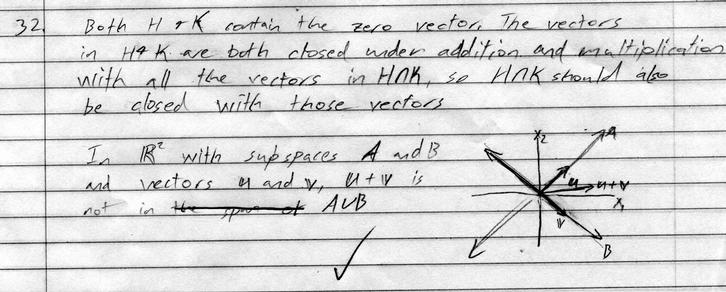 32. Both H & K contain the zero vector. The vectors
in H & K are both closed under addition and multiplication
with all the vectors in H∩K, so H∩K should also
be closed with those vectors
In ℝ² with subspaces A and B
and vectors u and v, u+v is
not in the span of A∪B
x₂
A
u
u+v
x₁
v
B